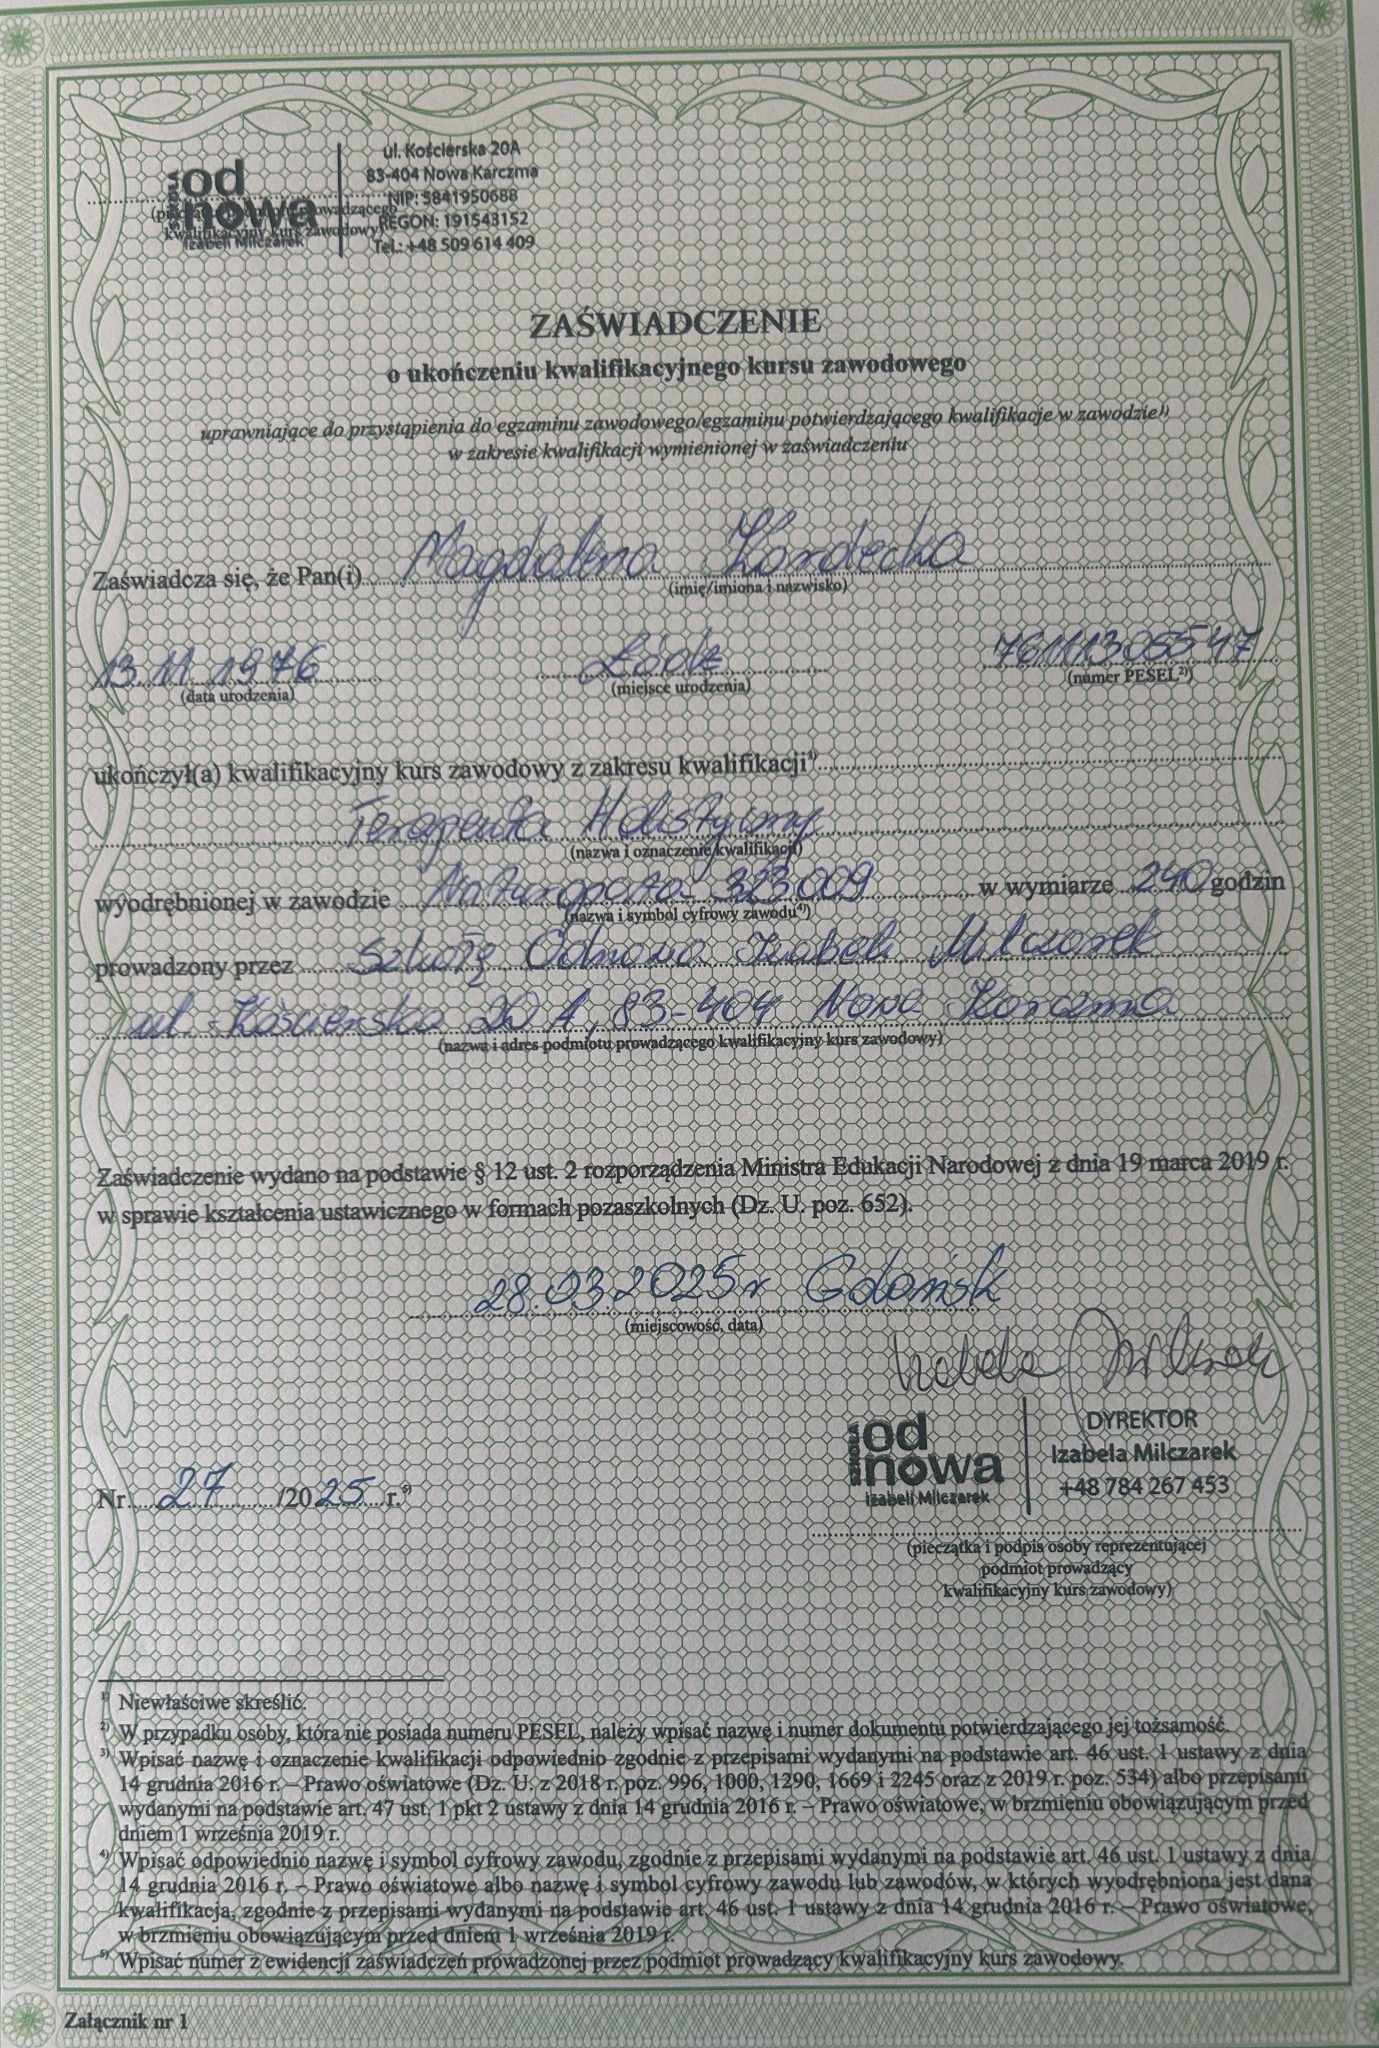 ul. Kościerska 20A
83-404 Nowa Karczma
NIP: 5841950688
REGON: 191543152
Tel.: +48 509 614 409
SZKOŁA
od
nowa
Izabeli Milczarek
kwalifikacyjny kurs zawodowy)
ZAŚWIADCZENIE
o ukończeniu kwalifikacyjnego kursu zawodowego
uprawniające do przystąpienia do egzaminu zawodowego/egzaminu potwierdzającego kwalifikacje w zawodzie¹⁾
w zakresie kwalifikacji wymienionej w zaświadczeniu
Zaświadcza się, że Pan(i) Magdalena Kordecka
(imię/imiona i nazwisko)
13.11.1976 Łódź 76111305547
(data urodzenia) (miejsce urodzenia) (numer PESEL²⁾)
ukończył(a) kwalifikacyjny kurs zawodowy z zakresu kwalifikacji³⁾
Terapeuta Holistyczny
(nazwa i oznaczenie kwalifikacji)
wyodrębnionej w zawodzie Naturopata - 323009 w wymiarze 240 godzin
(nazwa i symbol cyfrowy zawodu⁴⁾)
prowadzony przez Szkołę Odnowa Izabeli Milczarek
ul. Kościerska 20 A, 83-404 Nowa Karczma
(nazwa i adres podmiotu prowadzącego kwalifikacyjny kurs zawodowy)
Zaświadczenie wydano na podstawie § 12 ust. 2 rozporządzenia Ministra Edukacji Narodowej z dnia 19 marca 2019 r.
w sprawie kształcenia ustawicznego w formach pozaszkolnych (Dz. U. poz. 652).
28.03.2025r Gdańsk
(miejscowość, data)
Izabela Milczarek
SZKOŁA
od
nowa
Izabeli Milczarek
DYREKTOR
Izabela Milczarek
+48 784 267 453
Nr 27 /2025 r.⁵⁾
(pieczątka i podpis osoby reprezentującej
podmiot prowadzący
kwalifikacyjny kurs zawodowy)
¹⁾ Niewłaściwe skreślić.
²⁾ W przypadku osoby, która nie posiada numeru PESEL, należy wpisać nazwę i numer dokumentu potwierdzającego jej tożsamość.
³⁾ Wpisać nazwę i oznaczenie kwalifikacji odpowiednio zgodnie z przepisami wydanymi na podstawie art. 46 ust. 1 ustawy z dnia
14 grudnia 2016 r. – Prawo oświatowe (Dz. U. z 2018 r. poz. 996, 1000, 1290, 1669 i 2245 oraz z 2019 r. poz. 534) albo przepisami
wydanymi na podstawie art. 47 ust. 1 pkt 2 ustawy z dnia 14 grudnia 2016 r. – Prawo oświatowe, w brzmieniu obowiązującym przed
dniem 1 września 2019 r.
⁴⁾ Wpisać odpowiednio nazwę i symbol cyfrowy zawodu, zgodnie z przepisami wydanymi na podstawie art. 46 ust. 1 ustawy z dnia
14 grudnia 2016 r. – Prawo oświatowe albo nazwę i symbol cyfrowy zawodu lub zawodów, w których wyodrębniona jest dana
kwalifikacja, zgodnie z przepisami wydanymi na podstawie art. 46 ust. 1 ustawy z dnia 14 grudnia 2016 r. – Prawo oświatowe,
w brzmieniu obowiązującym przed dniem 1 września 2019 r.
⁵⁾ Wpisać numer z ewidencji zaświadczeń prowadzonej przez podmiot prowadzący kwalifikacyjny kurs zawodowy.
Załącznik nr 1